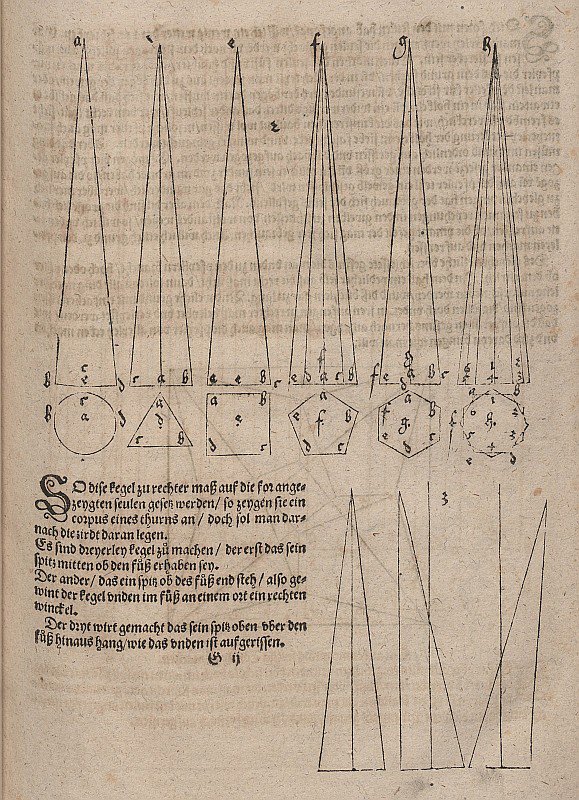 a e f g h
2
b c e d c a b e e b c e d a c b f e d a b c
b c a d a d c b a b e d c a b f c e d a b g c f e d a h
SO dise kegel zu rechter maß auf die for ange-
zeygten seulen gesetz werden / so zeygen sie ein
corpus eines thurns an / doch sol man dar-
nach die zirdt daran legen.
Es sind dreyerley kegel zů machen / der erst das sein
spitz mitten ob den fůß erhaben sey.
Der ander / das ein spitz ob des fůß end steh / also ge-
wint der kegel vnden im fůß an einem ort ein rechten
winckel.
Der dryt wirt gemacht das sein spitz oben vber den
fůß hinaus hang / wie das vnden ist aufgerissen.
G ij
3